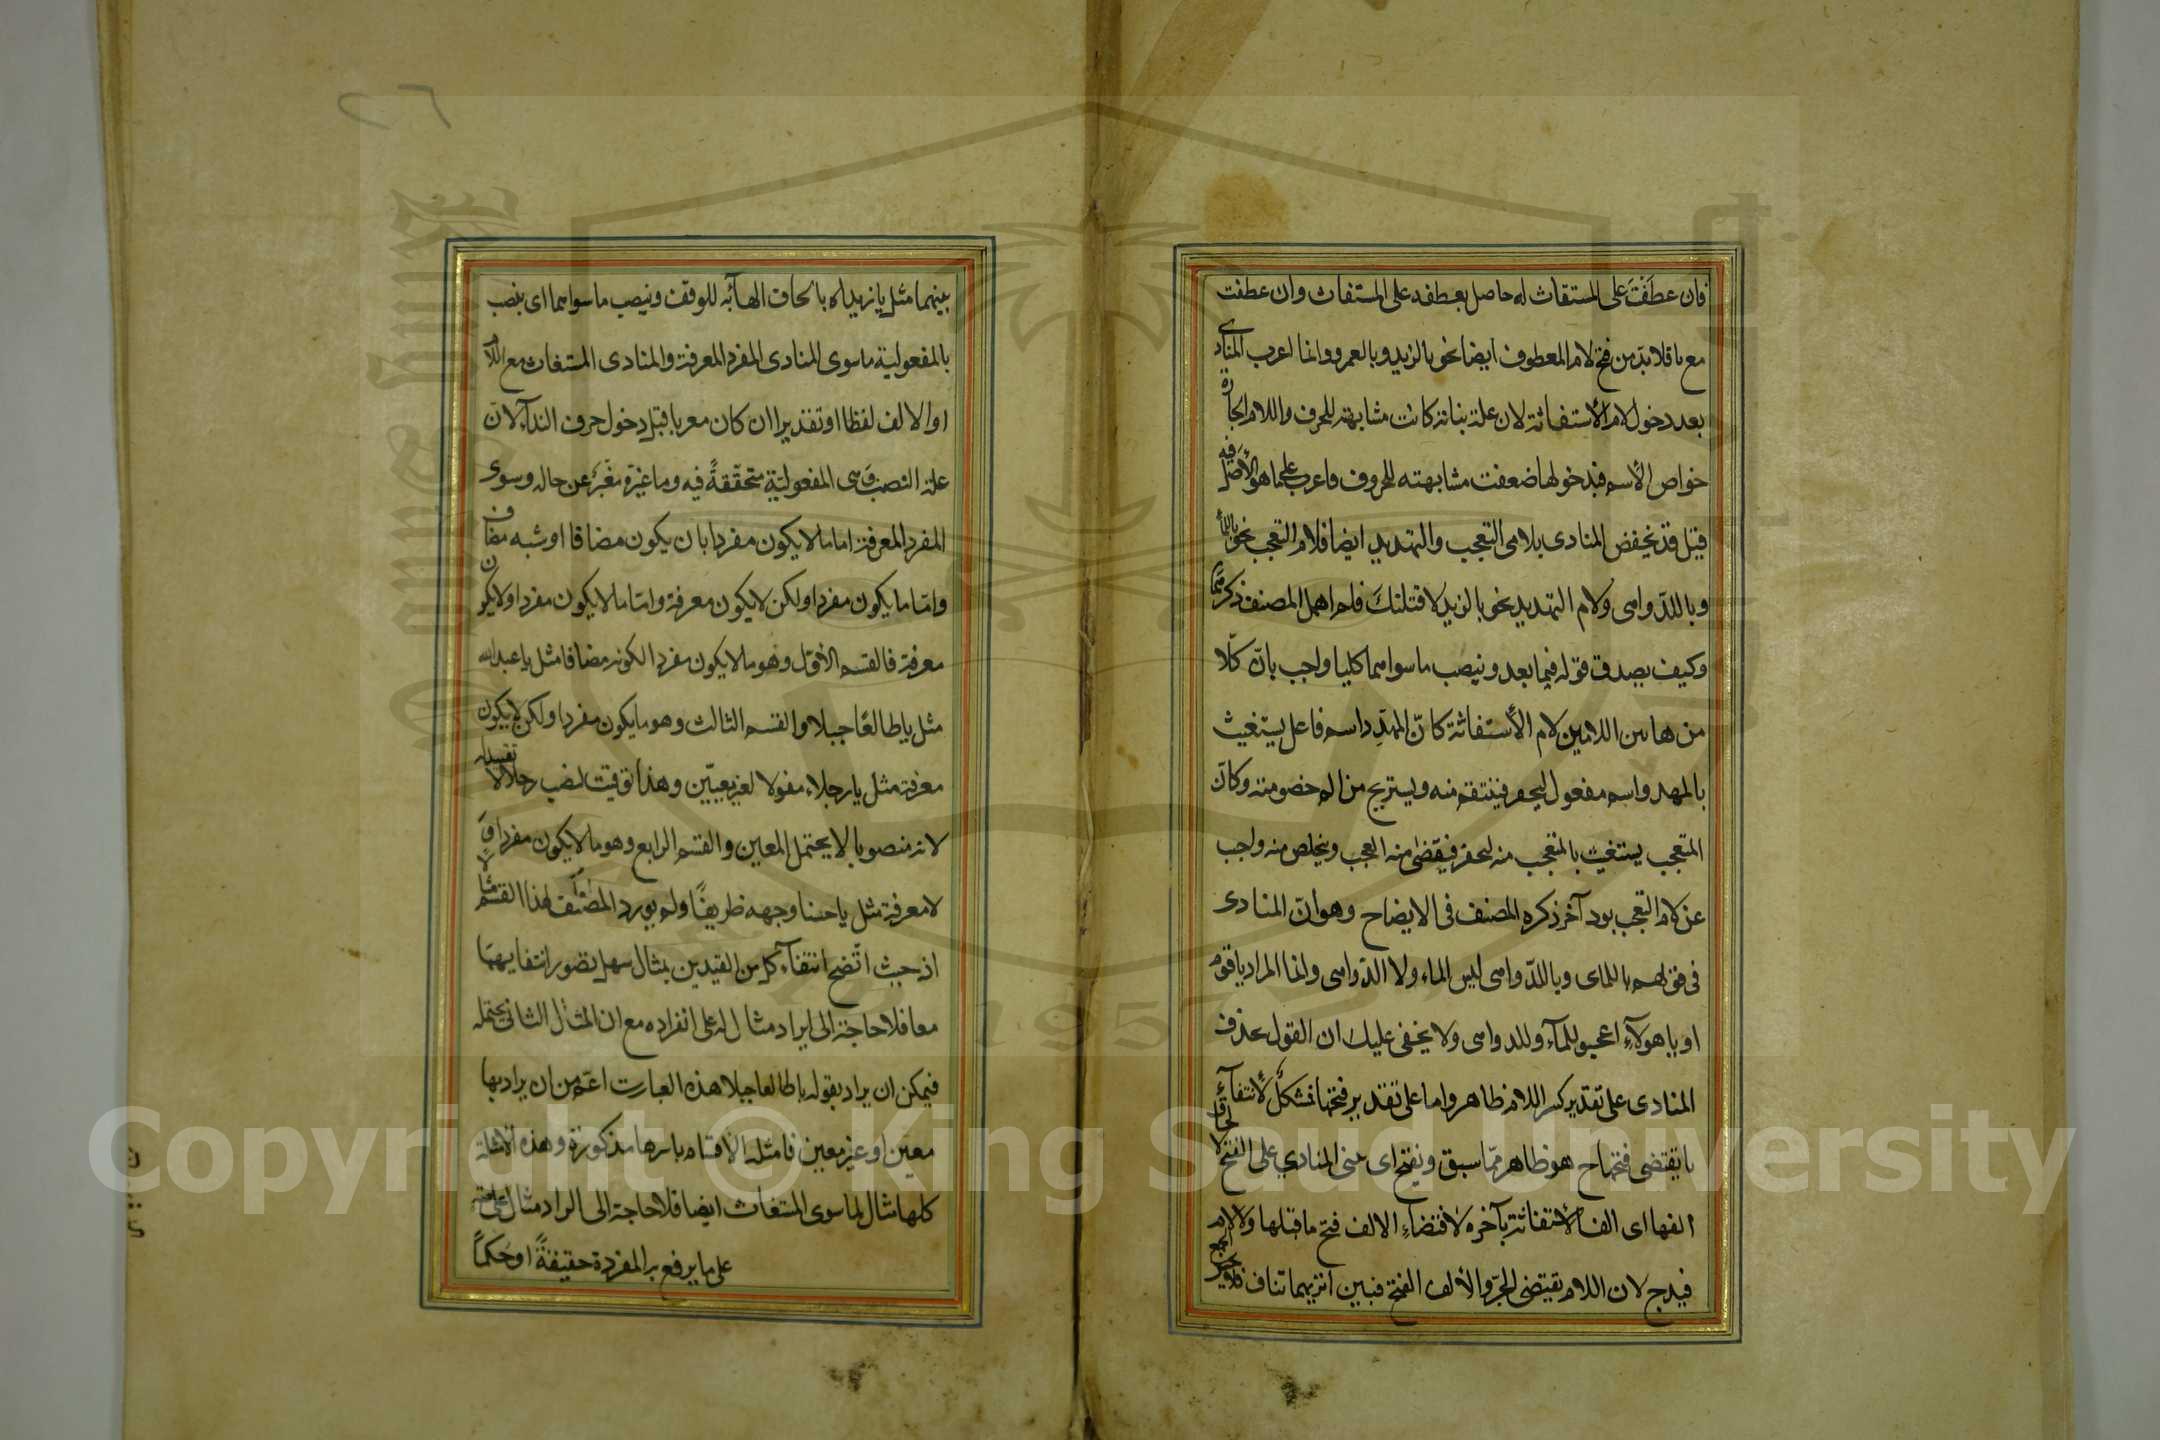 فان عطفت على المستغاث له حاصل بعطفه على المستغاث وان عطفت
مع يا فلا بد من فتح لام المعطوف ايضا نحو يا لزيد ويا لعمرو وانما اعرب المنادى
بعد دخول لام الاستغاثة لان علة بنائه كانت مشابهته للحرف واللام الجارة
خواص الاسم فبدخولها ضعفت مشابهته للحروف فاعرب على ما هو الاصل فيه
قيل قد يخفض المنادى بلامى التعجب والتهديد ايضا فلام التعجب نحو يا للماء
ويا للدواهى ولام التهديد نحو يا لزيد لاقتلنك فلم اهمل المصنف ذكرهما
وكيف يصدق قوله فيما بعد وينصب ما سواهما كليا واجب بان كلا
من هاتين اللامين لام الاستغاثة كان المهدد اسم فاعل يستغيث
بالمهدد اسم مفعول ليحضر فينتقم منه ويستريح من الم خصومته وكان
المتعجب يستغيث بالمتعجب منه ليحضر فيقضى منه العجب ويتخلص منه واجب
عن لام التعجب بود آخر ذكره المصنف فى الايضاح وهو ان المنادى
فى قولهم يا للماء ويا للدواهى ليس الماء ولا الدواهى وانما المراد يا قوم
او يا هولآء اعجبوا للمآء وللدواهى ولا يخفى عليك ان القول بحذف
المنادى على تقدير كسر اللام ظاهر واما على تقدير فتحها فمشكل لانتفآء
ما يقتضى فتحها ح هو ظاهر مما سبق ويفتح اى يبنى المنادي على الفتح لالحاق
الفها اى الف الاستغاثة بآخره لاقتضاء الالف فتح ما قبلها ولا لام
فيه ح لان اللام يقتضى الجر والالف الفتح فبين اثريهما تناف فلا يحسن الجمع
بينهما مثل يا زيداه بالحاق الهآء به للوقف وينصب ما سواهما اى ينصب
بالمفعولية ما سوى المنادى المفرد المعرفة والمنادى المستغاث مع اللام
او الالف لفظا او تقديرا ان كان معربا قبل دخول حرف الندآء لان
علة النصب وهى المفعولية متحققة فيه وما غيره مغير عن حاله وسوى
المفرد المعرفة اما ما لا يكون مفردا بان يكون مضافا او شبه مضاف
واما ما يكون مفردا ولكن لا يكون معرفة واما ما لا يكون مفردا ولا يكون
معرفة فالقسم الاول وهو ما لا يكون مفردا لكونه مضافا مثل يا عبد الله
مثل يا طالعا جبلا والقسم الثالث وهو ما يكون مفردا ولكن لا يكون
معرفة مثل يا رجلا مقولا لغير معين وهذا توقيت لنصب رجلا لا تقييد له
لانه منصوبا لا يحتمل المعين والقسم الرابع وهو ما لا يكون مفردا و
لا معرفة مثل يا حسنا وجهه ظريفا ولم يورد المصنف لهذا القسم مثالا
اذ حيث اتضح انتفآء كل من القيدين بمثال سهل تصور انتفايهما
معا فلا حاجة الى ايراد مثال له على انفراده مع ان المثال الثانى يحتمله
فيمكن ان يراد بقوله يا طالعا جبلا هذه العبارت اعم من ان يراد بها
معين او غير معين فامثلة الاقسام باسرها مذكورة وهذه الامثلة
كلها مثال لما سوى المستغاث ايضا فلا حاجة الى ايراد مثال على حدة
على ما يرفع به المفردة حقيقة او حكما
Copyright © King Saud University
1957